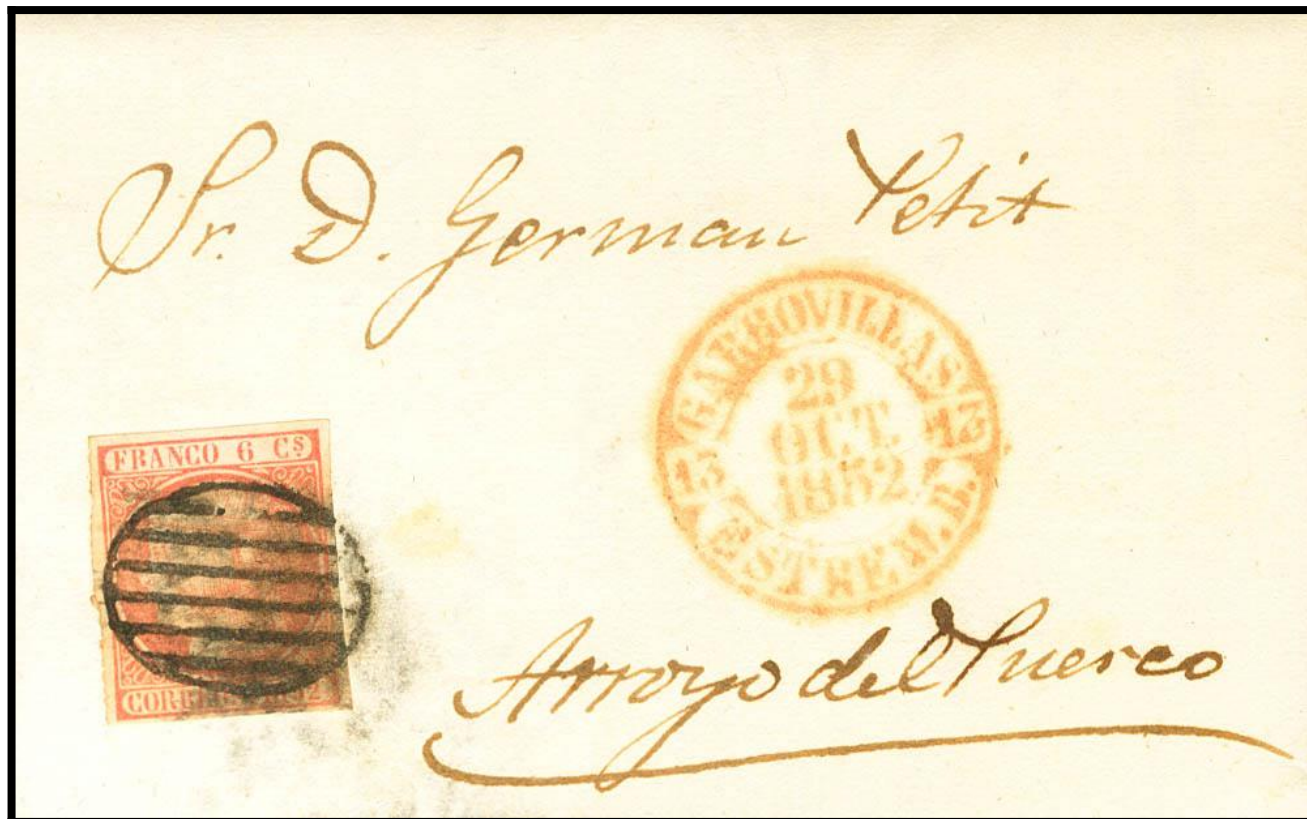 Sr. D. German Petit
GARROVILLAS
29
OCT.
1852
13 13
ESTREM.B.
FRANCO 6 CS
Arroyo del Puerco